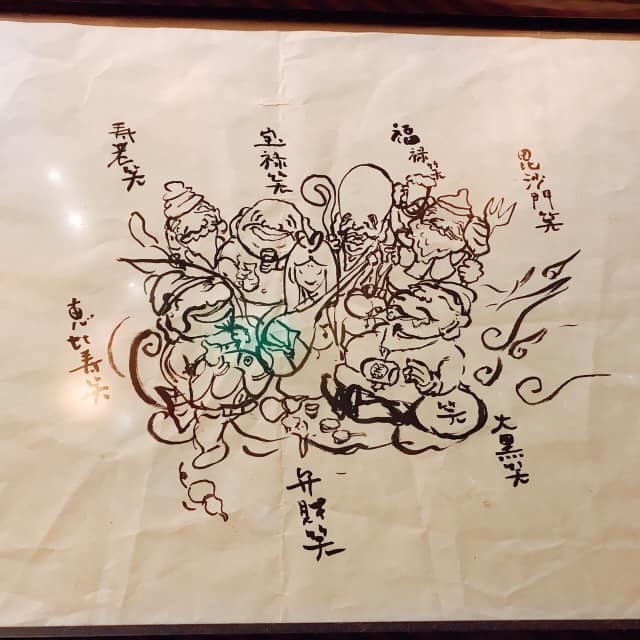 毘沙門笑
福禄笑
宝禄笑
寿老笑
恵比寿笑
大黒笑
笑
弁財笑